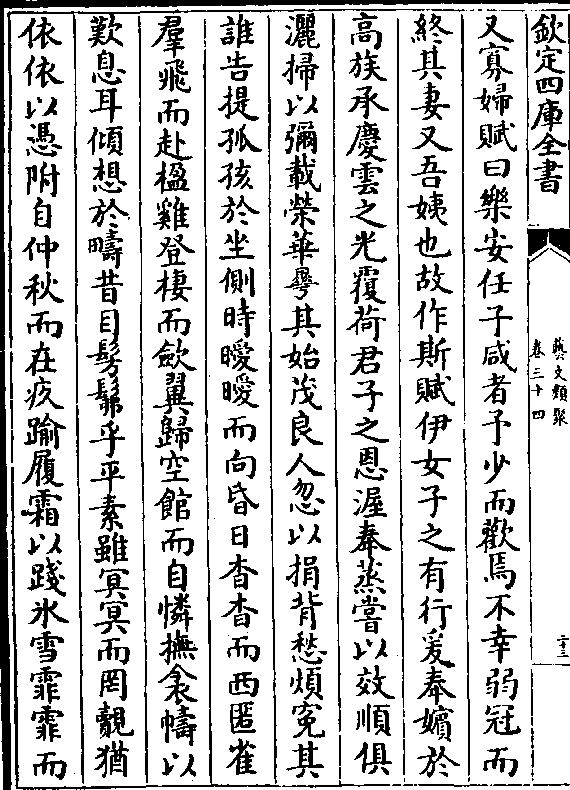 欽定四庫全書
藝文類聚
卷三十四
二十三
又寡婦賦曰樂安任子咸者予少而歡焉不幸弱冠而
終其妻又吾姨也故作斯賦伊女子之有行爰奉嬪於
高族承慶雲之光覆荷君子之恩渥奉蒸嘗以效順俱
灑掃以彌載榮華曄其始茂良人忽以捐背愁煩寃其
誰告提孤孩於坐側時曖曖而向昏日杳杳而西匿雀
羣飛而赴楹雞登棲而歛翼歸空館而自憐撫衾幬以
歎息耳傾想於疇昔目髣髴乎平素雖冥冥而罔覿猶
依依以憑附自仲秋而在疚踰履霜以踐氷雪霏霏而